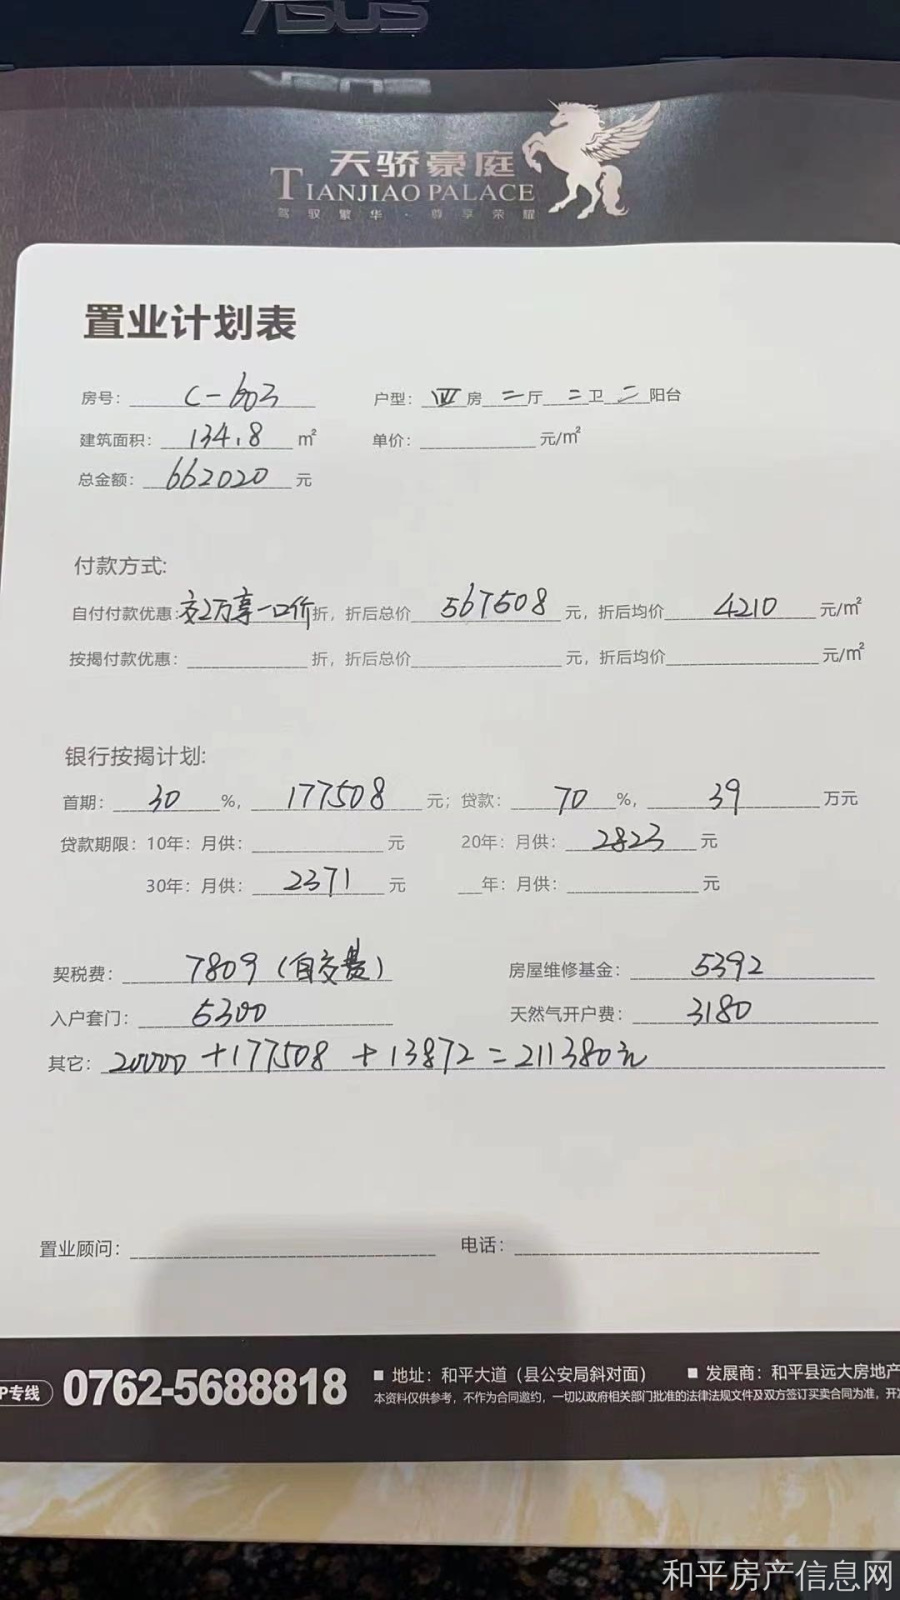 ASUS
天骄豪庭
TIANJIAO PALACE
驾驭繁华·尊享荣耀
置业计划表
房号：C-603 户型：四房二厅二卫二阳台
建筑面积：134.8 m² 单价：元/m²
总金额：662020元
付款方式:
自付付款优惠:交2万享一口价折，折后总价567508元，折后均价4210元/m²
按揭付款优惠：折，折后总价元，折后均价元/m²
银行按揭计划:
首期：30%，177508元；贷款：70%，39万元
贷款期限：10年：月供：元 20年：月供：2823元
30年：月供：2371元 年：月供：元
契税费：7809（自交费） 房屋维修基金：5392
入户套门：5300 天然气开户费：3180
其它：20000+177508+13872=211380元
置业顾问： 电话：
P专线 0762-5688818 ■ 地址：和平大道（县公安局斜对面） ■ 发展商：和平县远大房地产
本资料仅供参考，不作为合同邀约，一切以政府相关部门批准的法律法规文件及双方签订买卖合同为准，开
和平房产信息网